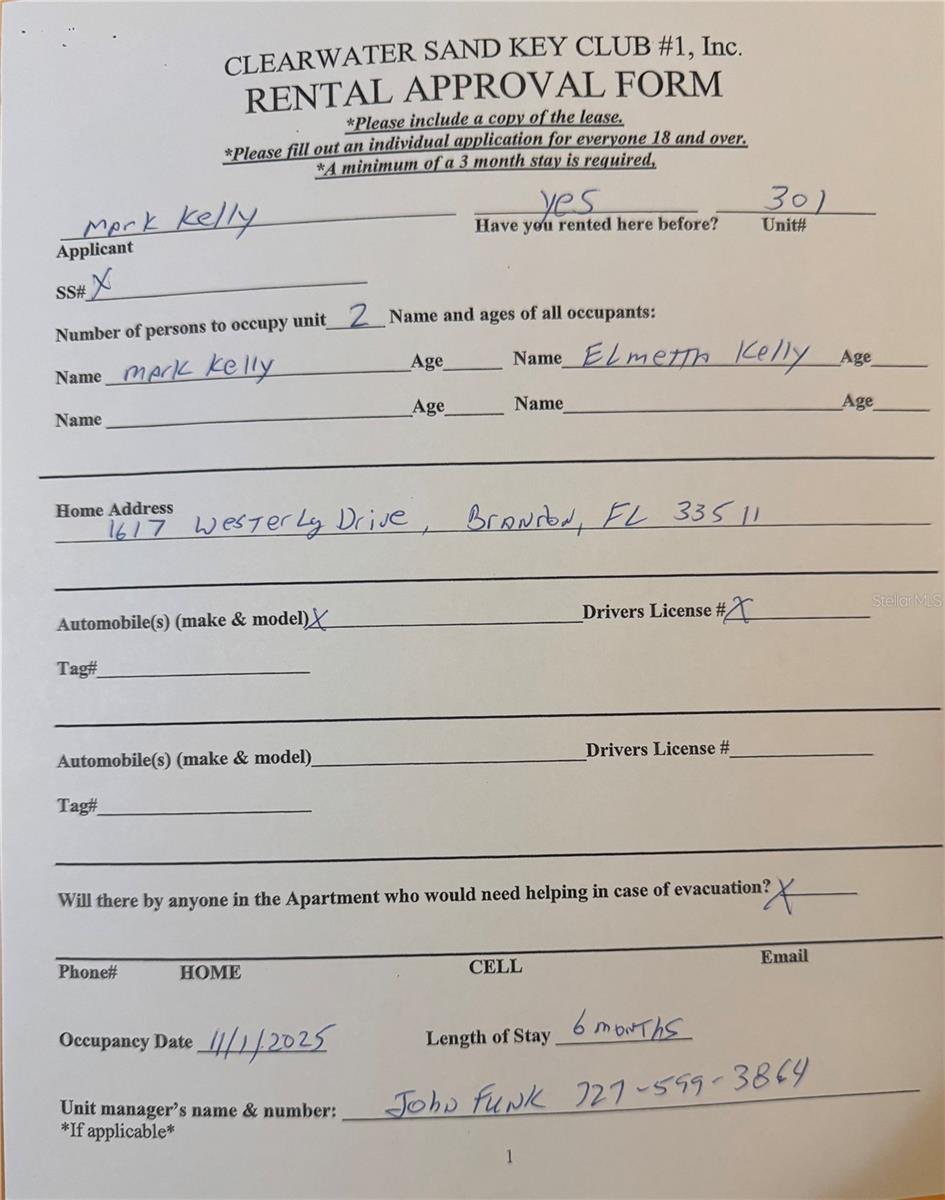 CLEARWATER SAND KEY CLUB #1, Inc.
RENTAL APPROVAL FORM
*Please include a copy of the lease.
*Please fill out an individual application for everyone 18 and over.
*A minimum of a 3 month stay is required,
Mark Kelly yes 301
Applicant Have you rented here before? Unit#
SS# X
Number of persons to occupy unit 2 Name and ages of all occupants:
Name Mark Kelly Age Name ELmetta Kelly Age
Name Age Name Age
Home Address
1617 Westerly Drive, Brandon, FL 33511
Automobile(s) (make & model) X Drivers License # X
StellarMLS
Tag#
Automobile(s) (make & model) Drivers License #
Tag#
Will there by anyone in the Apartment who would need helping in case of evacuation? X
Phone# HOME CELL Email
Occupancy Date 11/1/2025 Length of Stay 6 months
Unit manager's name & number: John Funk 727-599-3864
*If applicable*
1